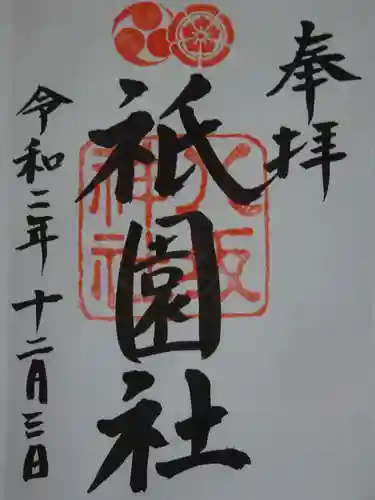 奉拝
祇園社
八坂
神社
令和二年十二月三日